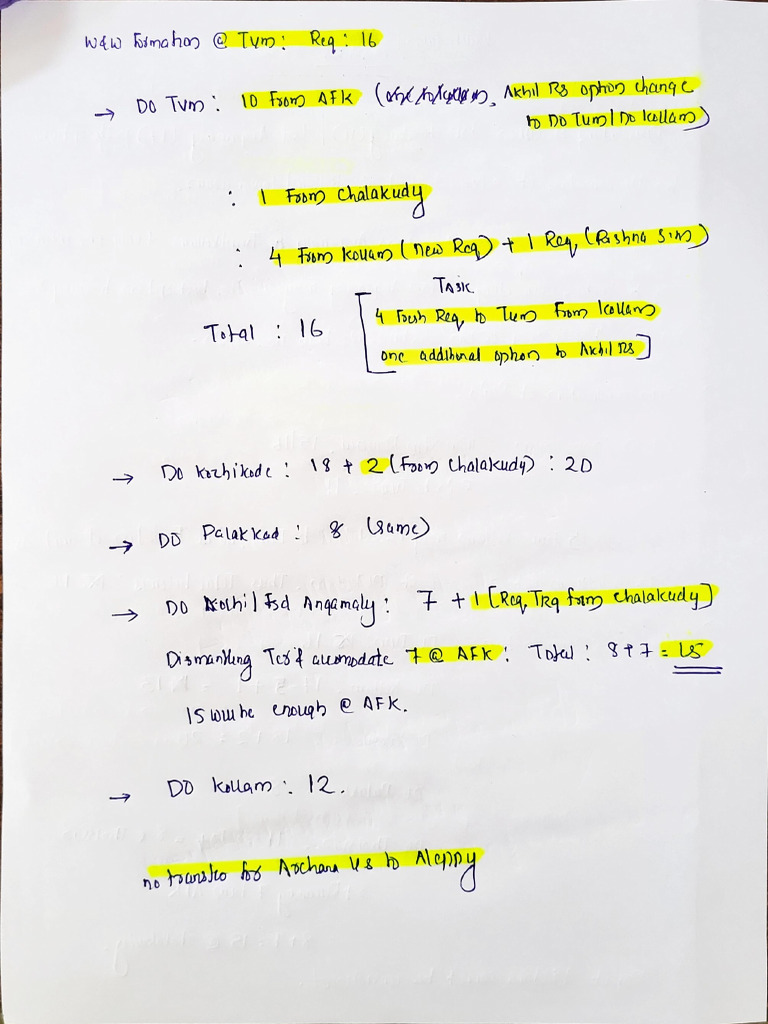 W&W Formation @ Tvm: Req: 16
→ DO Tvm: 10 From AFK ( Akhil RS option change
to DO Tvm/DO Kollam)
: 1 From Chalakudy
: 4 From Kollam (New Req) + 1 Req (
Task
Total : 16 [4 Fresh Req to Tvm From Kollam
one additional option to Akhil RS]
→ DO Kozhikode : 18 + 2 (From Chalakudy) : 20
→ DO Palakkad : 8 (same)
→ DO Kochi / Fsd Angamaly : 7 + 1 [Req, TRq from Chalakudy]
Dismantling & accomodate 7 @ AFK : Total : 8+7 = 15
15 will be enough @ AFK.
→ DO Kollam : 12.
no transfer for Archana to Aleppy